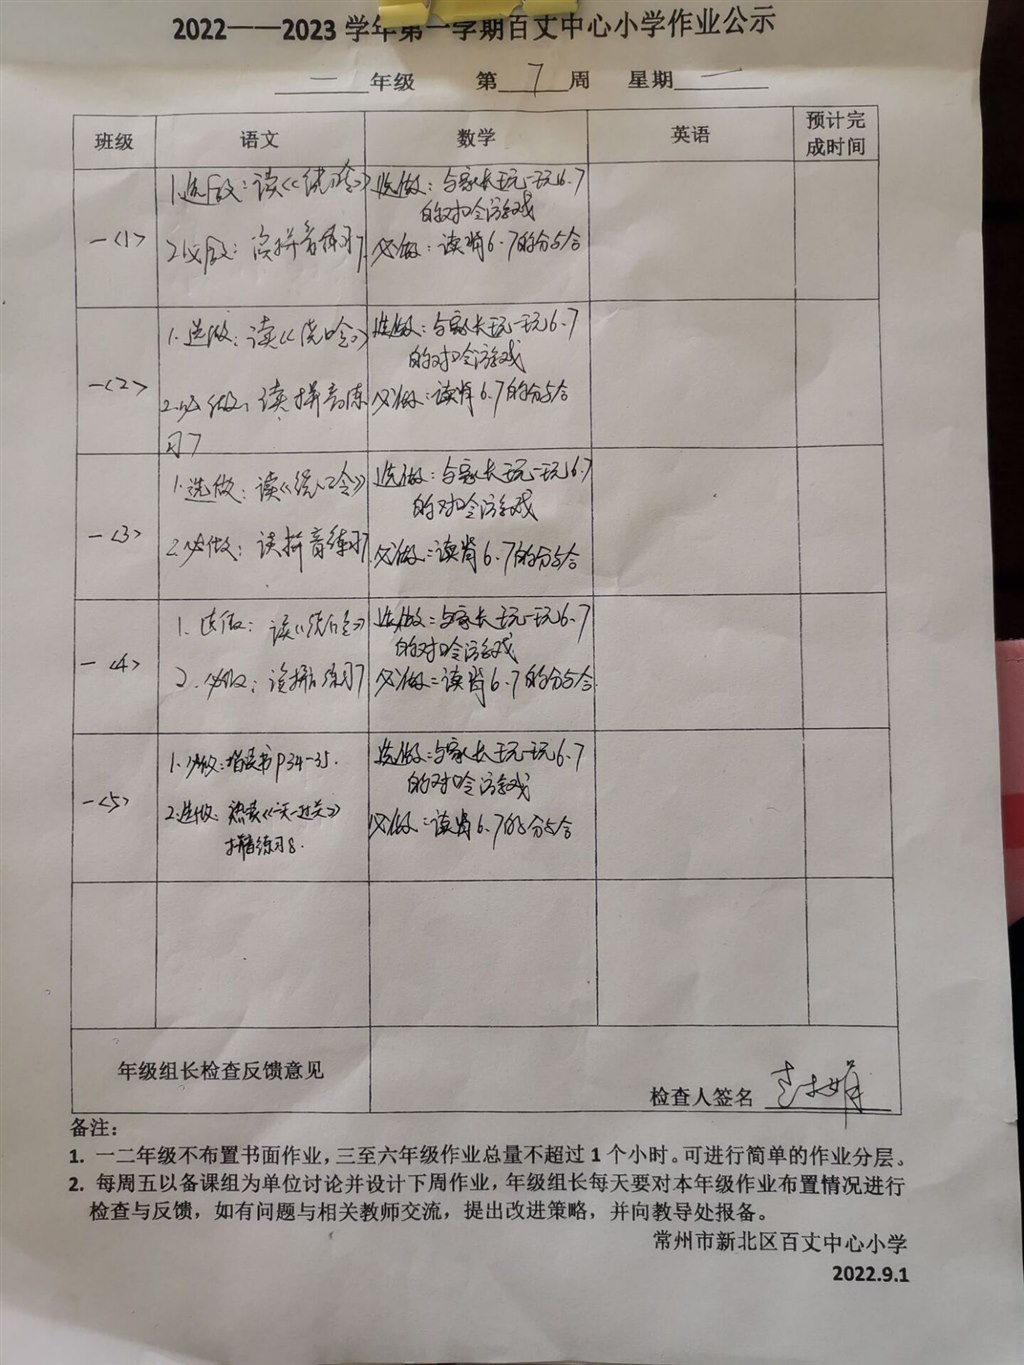 2022——2023 学年第一学期百丈中心小学作业公示
一 年级 第 7 周 星期 一
班级 语文 数学 英语 预计完
成时间
一<1> 1.选做：读《绕口令》 选做：与家长玩一玩6.7
的对口令游戏
2.必做：读拼音练习7. 必做：读背6.7的分与合
一<2> 1.选做：读《绕口令》 选做：与家长玩一玩6.7
的对口令游戏
2.必做：读拼音练 必做：读背6.7的分与合
习7
一<3> 1.选做：读《绕口令》 选做：与家长玩一玩6.7
的对口令游戏
2.必做：读拼音练习7. 必做：读背6.7的分与合
一<4> 1.选做：读《绕口令》 选做：与家长玩一玩6.7
的对口令游戏
2.必做：读拼音练习7 必做：读背6.7的分与合
一<5> 1.必做：拼读书P34-35. 选做：与家长玩一玩6.7
的对口令游戏
2.选做：熟读《一天一过关》
拼音练习8. 必做：读背6.7的分与合
年级组长检查反馈意见
检查人签名
备注：
1. 一二年级不布置书面作业，三至六年级作业总量不超过 1 个小时。可进行简单的作业分层。
2. 每周五以备课组为单位讨论并设计下周作业，年级组长每天要对本年级作业布置情况进行
检查与反馈，如有问题与相关教师交流，提出改进策略，并向教导处报备。
常州市新北区百丈中心小学
2022.9.1